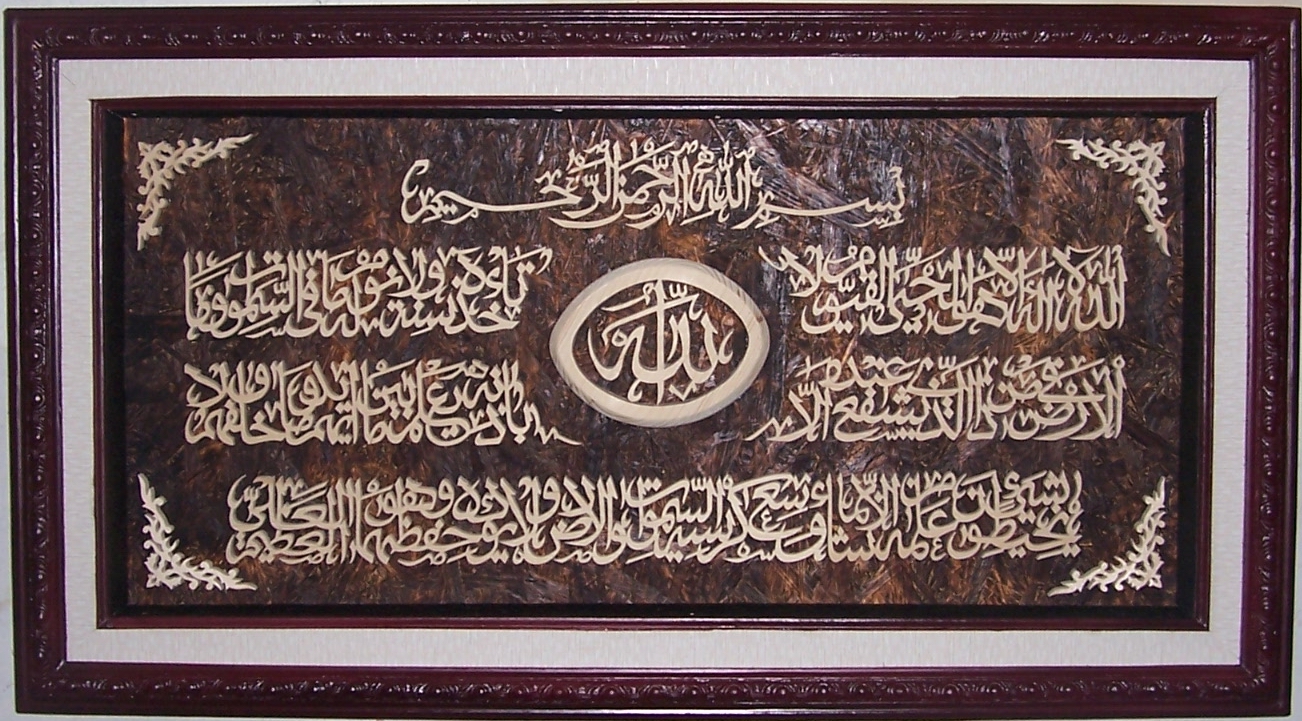 بسم الله الرحمن الرحيم
الله لا إله إلا هو الحي القيوم لا تأخذه سنة ولا نوم له ما في السموات وما في
الله
الأرض من ذا الذي يشفع عنده إلا بإذنه يعلم ما بين أيديهم وما خلفهم ولا
يحيطون بشيء من علمه إلا بما شاء وسع كرسيه السموات والأرض ولا يؤده حفظهما وهو العلي العظيم